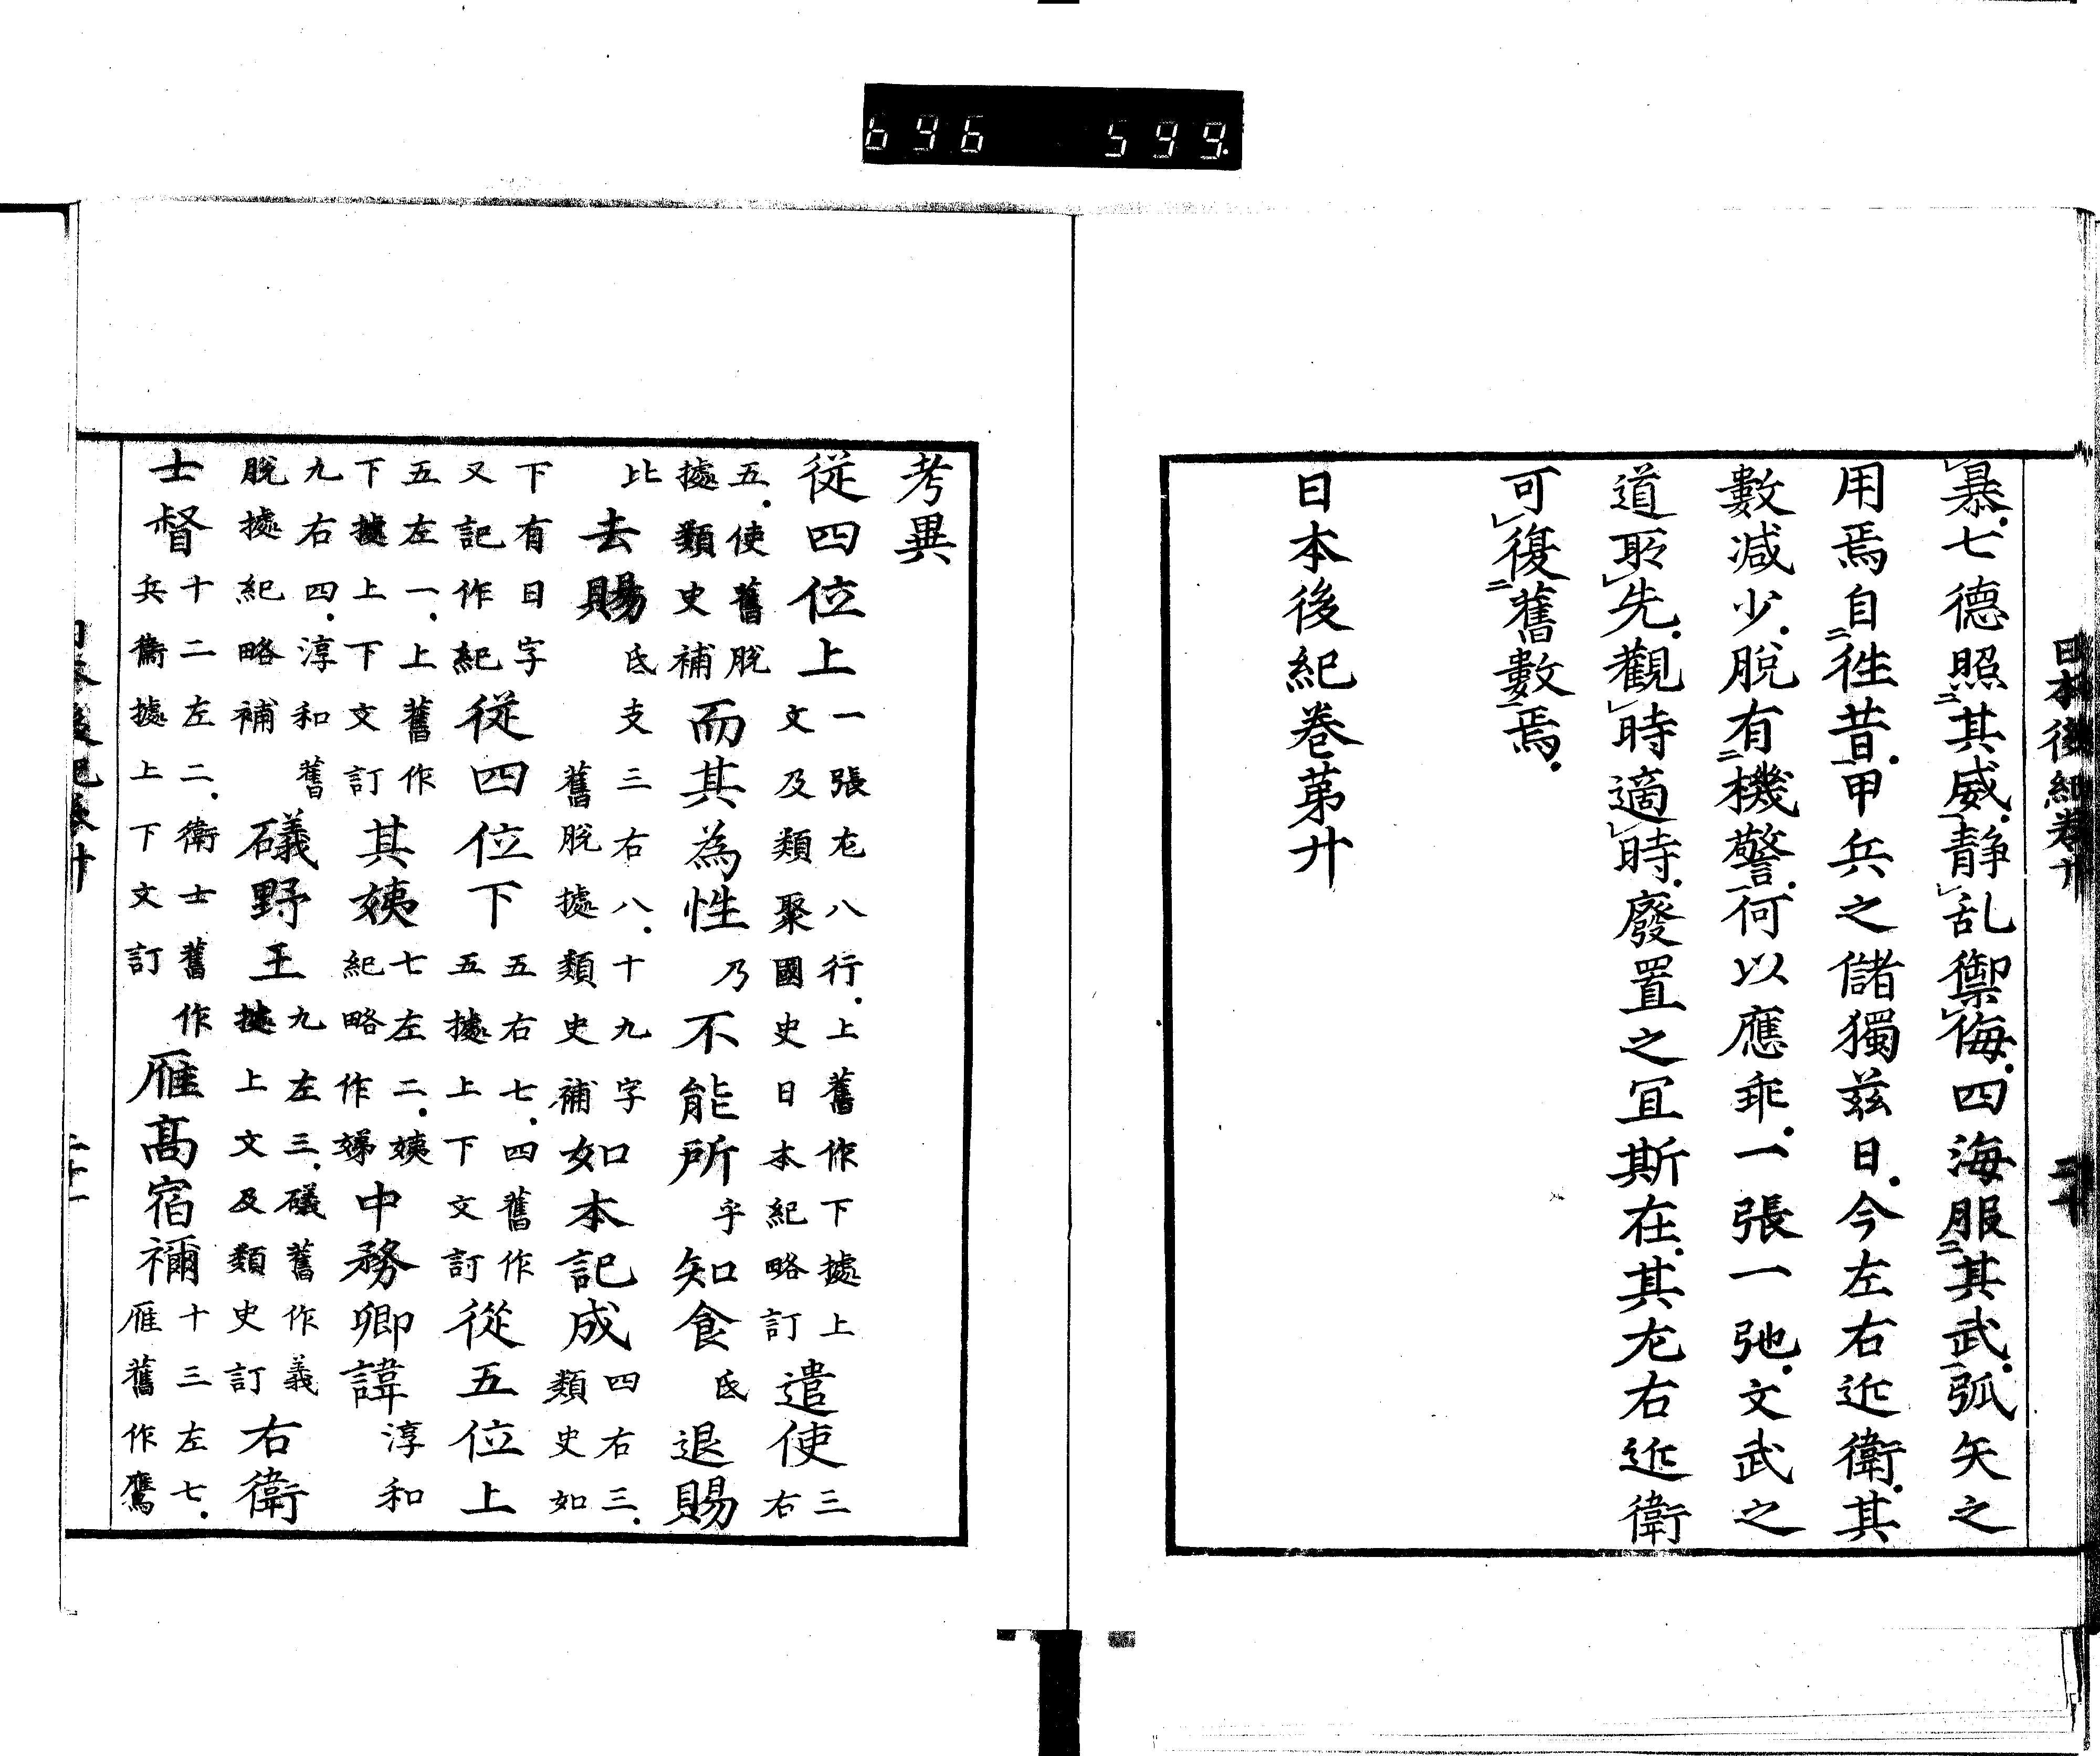 696 599.
日本後紀卷廿
暴七德照其威静乱禦侮四海服其武弧矢之
用焉自徃昔甲兵之儲獨兹日今左右近衛其
數减少脫有機警何以應乖一張一弛文武之
道取先觀時適時廢置之冝斯在其左右近衛
可復舊數焉
日本後紀卷第廿
考異
從四位上一張左八行上舊作下據上文及類聚國史日本紀略訂遣使三右
五使舊脫據類史補而其為性乃不能所乎知食氐退賜
比去賜氐支三右八十九字舊脫據類史補如本記成四右三類史如
下有日字又記作紀從四位下五右七四舊作五據上下文訂從五位上
五左一上舊作下據上下文訂其姨七左二姨紀略作娣中務卿諱淳和
九右四淳和舊脫據紀略補礒野王九左三礒舊作義據上文及類史訂右衛
士督十二左二衛士舊作兵衛據上下文訂雁髙宿禰十三左七雁舊作鷹